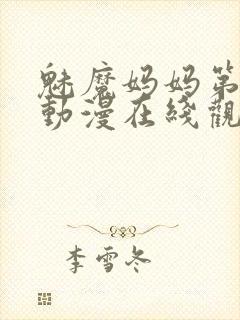 魅魔妈妈第
動漫在綫觀
李雪冬